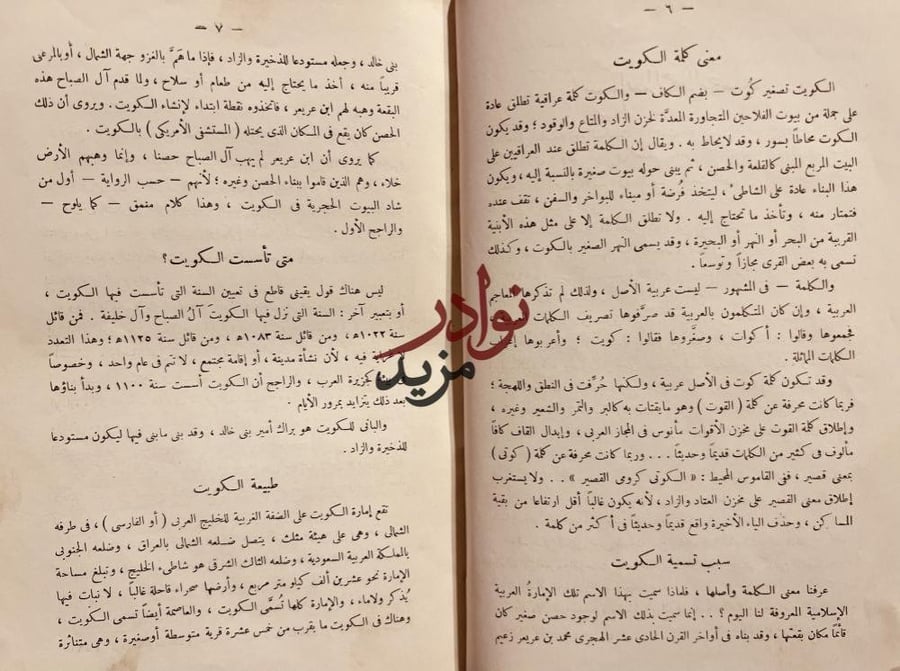 — ٦ —
معنى كلمة الكويت
الكويت تصغير كُوت — بضم الكاف — والكوت كلمة عراقية تطلق عادة
على جملة من بيوت الفلاحين المتجاورة المعدَّة لخزن الزاد والمتاع والوقود ؛ وقد يكون
الكوت محاطاً بسور ، وقد لايحاط به . ويقال إن الكلمة تطلق عند العراقيين على
البيت المربع المبنى كالقلعة والحصن ، ثم يبنى حوله بيوت صغيرة بالنسبة إليه ، ويكون
هذا البناء عادة على الشاطىء ، ليتخذ فُرضة أو ميناء للبواخر والسفن ، تقف عنده
فتمتار منه ، وتأخذ ما تحتاج إليه . ولا تطلق الكلمة إلا على مثل هذه الأبنية
القريبة من البحر أو النهر أو البحيرة ، وقد يسمى النهر الصغير بالكوت ، وكذلك
تسمى به بعض القرى مجازاً وتوسعاً .
والكلمة — فى المشهور — ليست عربية الأصل ، ولذلك لم تذكرها المعاجم
العربية ، وإن كان المتكلمون بالعربية قد صرّفوها تصريف الكلمات
فجمعوها وقالوا : أكوات ، وصغَّروها فقالوا : كويت ؛ وأعربوها إعراب
الكلمات المماثلة .
وقد تكون كلمة كوت فى الأصل عربية ، ولكنها حُرِّفت فى النطق واللهجة ؛
فربما كانت محرفة عن كلمة ( القوت ) وهو مايقتات به كالبر والتمر والشعير وغيره ،
وإطلاق كلمة القوت على مخزن الأقوات مأنوس فى المجاز العربى ، وإبدال القاف كافاً
مألوف فى كثير من الكلمات قديماً وحديثاً . . . وربما كانت محرفة عن كلمة ( كوتى )
بمعنى قصير ، ففى القاموس المحيط : « الكوتى كرومى القصير » . . ولا يستغرب
إطلاق معنى القصير على مخزن العتاد والزاد ، لأنه يكون غالباً أقل ارتفاعا من بقية
المساكن ، وحذف الياء الأخيرة واقع قديماً وحديثاً فى أكثر من كلمة .
سبب تسمية الكويت
عرفنا معنى الكلمة وأصلها ، فلماذا سميت بهذا الاسم تلك الإمارةُ العربية
الإسلامية المعروفة لنا اليوم ؟ . . إنما سميت بذلك الاسم لوجود حصن صغير كان
قائماً مكان بقعتها ، وقد بناه فى أواخر القرن الحادى عشر الهجرى محمد بن عريعر زعيم
— ٧ —
بنى خالد ، وجعله مستودعا للذخيرة والزاد ، فإذا ما همَّ بالغزو جهة الشمال ، أوبالمرعى
قريباً منه ، أخذ ما يحتاج إليه من طعام أو سلاح ، ولما قدم آل الصباح هذه
البقعة وهبه لهم ابن عريعر ، فاتخذوه نقطة ابتداء لإنشاء الكويت . ويروى أن ذلك
الحصن كان يقع فى المكان الذى يحتله ( المستشفى الأمريكى ) بالكويت .
كما يروى أن ابن عريعر لم يهب آل الصباح حصنا ، وإنما وهبهم الأرض
خلاء ، وهم الذين قاموا ببناء الحصن وغيره ؛ لأنهم — حسب الرواية — أول من
شاد البيوت الحجرية فى الكويت ، وهذا كلام منمق — كما يلوح —
والراجح الأول .
متى تأسست الكويت ؟
ليس هناك قول يقينى قاطع فى تعيين السنة التى تأسست فيها الكويت ،
أو بتعبير آخر : السنة التى نزل فيها الكويت آلُ الصباح وآل خليفة . فمن قائل
سنة ١٠٢٢ه ، ومن قائل سنة ١٠٨٣ه ، ومن قائل سنة ١١٢٥ه ؛ وهذا التعدد
فيه ، لأن نشأة مدينة ، أو إقامة مجتمع ، لا تتم فى عام واحد ، وخصوصاً
كجزيرة العرب ، والراجح أن الكويت أسست سنة ١١٠٠ ، وبدأ بناؤها
بعد ذلك يتزايد بمرور الأيام .
والبانى للكويت هو براك أمير بنى خالد ، وقد بنى مابنى فيها ليكون مستودعا
للذخيرة والزاد .
طبيعة الكويت
تقع إمارة الكويت على الضفة الغربية للخليج العربى ( أو الفارسى ) ، فى طرفه
الشمالى ، وهى على هيئة مثلث ، يتصل ضلعه الشمالى بالعراق ، وضلعه الجنوبى
بالمملكة العربية السعودية ، وضلعه الثالث الشرقى هو شاطىء الخليج ، وتبلغ مساحة
الإمارة نحو عشرين ألف كيلو متر مربع ، وأرضها صحراء قاحلة غالباً ، لا نبات فيها
يُذكر ولاماء ، والإمارة كلها تُسمَّى الكويت ، والعاصمة أيضاً تسمى الكويت ،
وهناك فى الكويت ما يقرب من خمس عشرة قرية متوسطة أوصغيرة ، وهى متناثرة
نوادر
مزيد